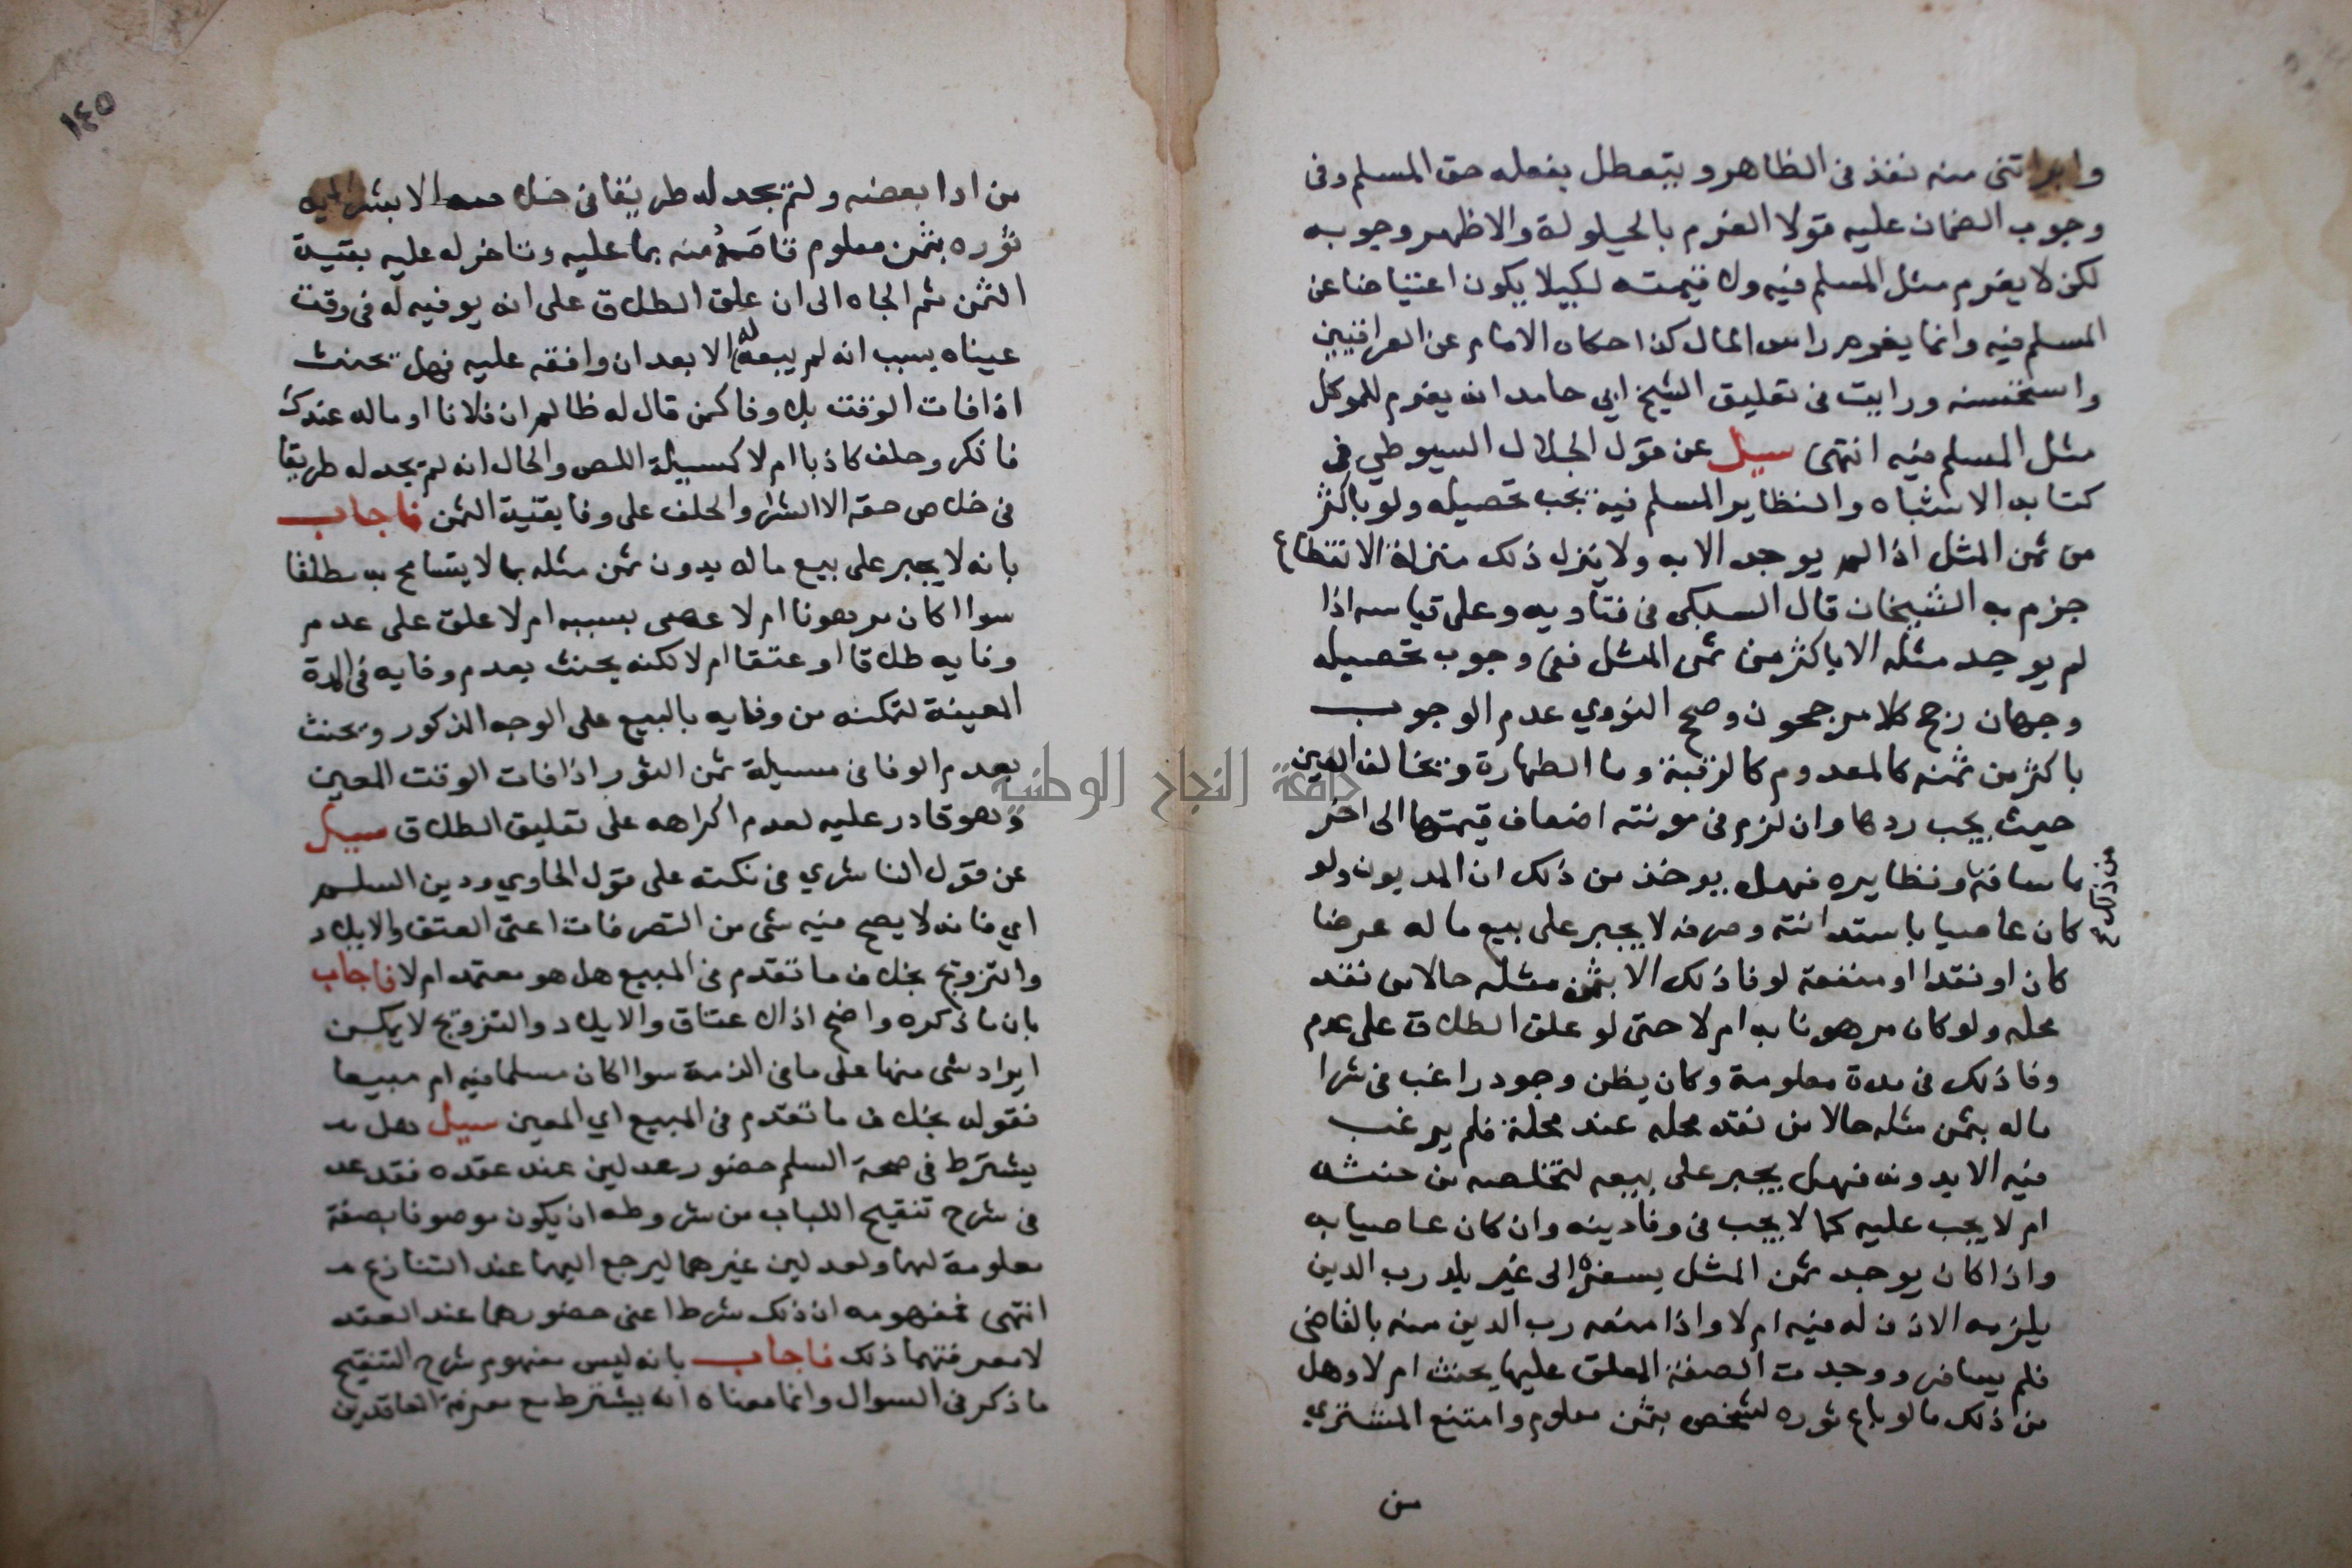 وابراتني منه نفذ في الظاهر ويتعطل بفعله حق المسلم وفي
وجوب الضمان عليه قولا الغرم بالحيلولة والاظهر وجوبه
لكن لا يغرم مثل المسلم فيه ولا قيمته لكيلا يكون اعتياضا عن
المسلم فيه وانما يغرم راس المال كذا حكاه الامام عن العراقيين
واستحسنه ورايت في تعليق الشيخ ابي حامد انه يغرم للموكل
مثل المسلم فيه انتهى سيل عن قول الجلال السيوطي في
كتابه الاشباه والنظاير المسلم فيه يجب تحصيله ولو باكثر
من ثمن المثل اذا لم يوجد الا به ولا ينزل ذلك منزلة الانقطاع
جزم به الشيخان قال السبكي في فتاويه وعلى قياسه اذا
لم يوجد مثله الا باكثر من ثمن المثل ففي وجوب تحصيله
وجهان رجح كلا مرجحون وصحح النووي عدم الوجوب
باكثر من ثمنه كالمعدوم كالرقبة وما الطهارة ويخالف العين
حيث يجب ردها وان لزم في مونته اضعاف قيمتها الى اخر
ما ساقه ونظايره فهل يوخذ من ذلك ان المديون ولو
كان عاصيا باستدانته وصرفه لا يجبر على بيع ماله عرضا
كان او نقدا او منفعة لوفا ذلك الا بثمن مثله حالا من نقد
محله ولو كان مرهونا به ام لا حتى لو علق الطلاق على عدم
وفا ذلك في مدة معلومة وكان يظن وجود راغب في شرا
ماله بثمن مثله حالا من نقد محله عند محلة فلم يرغب
فيه الا بدونه فهل يجبر على بيعه لتخلصه من حنثه
ام لا يجب عليه كما لا يجب في وفا دينه وان كان عاصيا به
واذا كان يوجد ثمن المثل بسفره الى غير بلد رب الدين
يلزمه الاذن له فيه ام لا واذا منعه رب الدين منه بالقاضي
فلم يسافر ووجدت الصفة المعلق عليها يحنث ام لا وهل
من ذلك ما لو باع ثوره لشخص بثمن معلوم وامتنع المشتري
من
من ادا بعضه ولم يجد له طريقا في خلاص حقه الا بشرائه
ثوره بثمن معلوم قاصه منه بما عليه وتاخر له عليه بقية
الثمن ثم الجاه الى ان علق الطلاق على انه يوفيه له في وقت
عيناه بسبب انه لم يبعه له الا بعد ان وافقه عليه فهل يحنث
اذا فات الوقت بلا وفا كمن قال له ظالم ان فلانا او ماله عندك
فانكر وحلف كاذبا ام لا كمسيلة اللص والحال انه لم يجد له طريقا
في خلاص حقه الا الشرا والحلف على وفا بقية الثمن فاجاب
بانه لا يجبر على بيع ماله بدون ثمن مثله بما لا يتسامح به مطلقا
سوا اكان مرهونا ام لا عصى بسببه ام لا علق على عدم
وفايه طلاقا او عتقا ام لا لكنه يحنث بعدم وفايه في المدة
المعينة لتمكنه من وفايه بالبيع على الوجه المذكور ويحنث
بعدم الوفا في مسيلة ثمن الثور اذا فات الوقت المعين
وهو قادر عليه لعدم اكراهه على تعليق الطلاق سيل
عن قول الناشري في نكته على قول الحاوي ودين السلم
اي فانه لا يصح فيه شي من التصرفات اعني العتق والايلاد
والتزويج بخلاف ما تقدم في المبيع هل هو معتمد ام لا فاجاب
بان ما ذكره واضح اذ الاعتاق والايلاد والتزويج لا يمكن
ايراد شي منها على ما في الذمة سوا اكان مسلما فيه ام مبيعا
فقوله بخلاف ما تقدم في المبيع اي المعين سيل هل
يشترط في صحة السلم حضور عدلين عند عقده فقد عد
في شرح تنقيح اللباب من شروطه ان يكون موصوفا بصفة
معلومة لهما ولعدلين غيرهما ليرجع اليهما عند التنازع
انتهى فمفهومه ان ذلك شرط اعني حضورهما عند العقد
لا معرفتهما ذلك فاجاب بانه ليس مفهوم شرح التنقيح
ما ذكر في السوال وانما معناه انه يشترط مع معرفة العاقدين
١٤٥
جامعة النجاح الوطنية